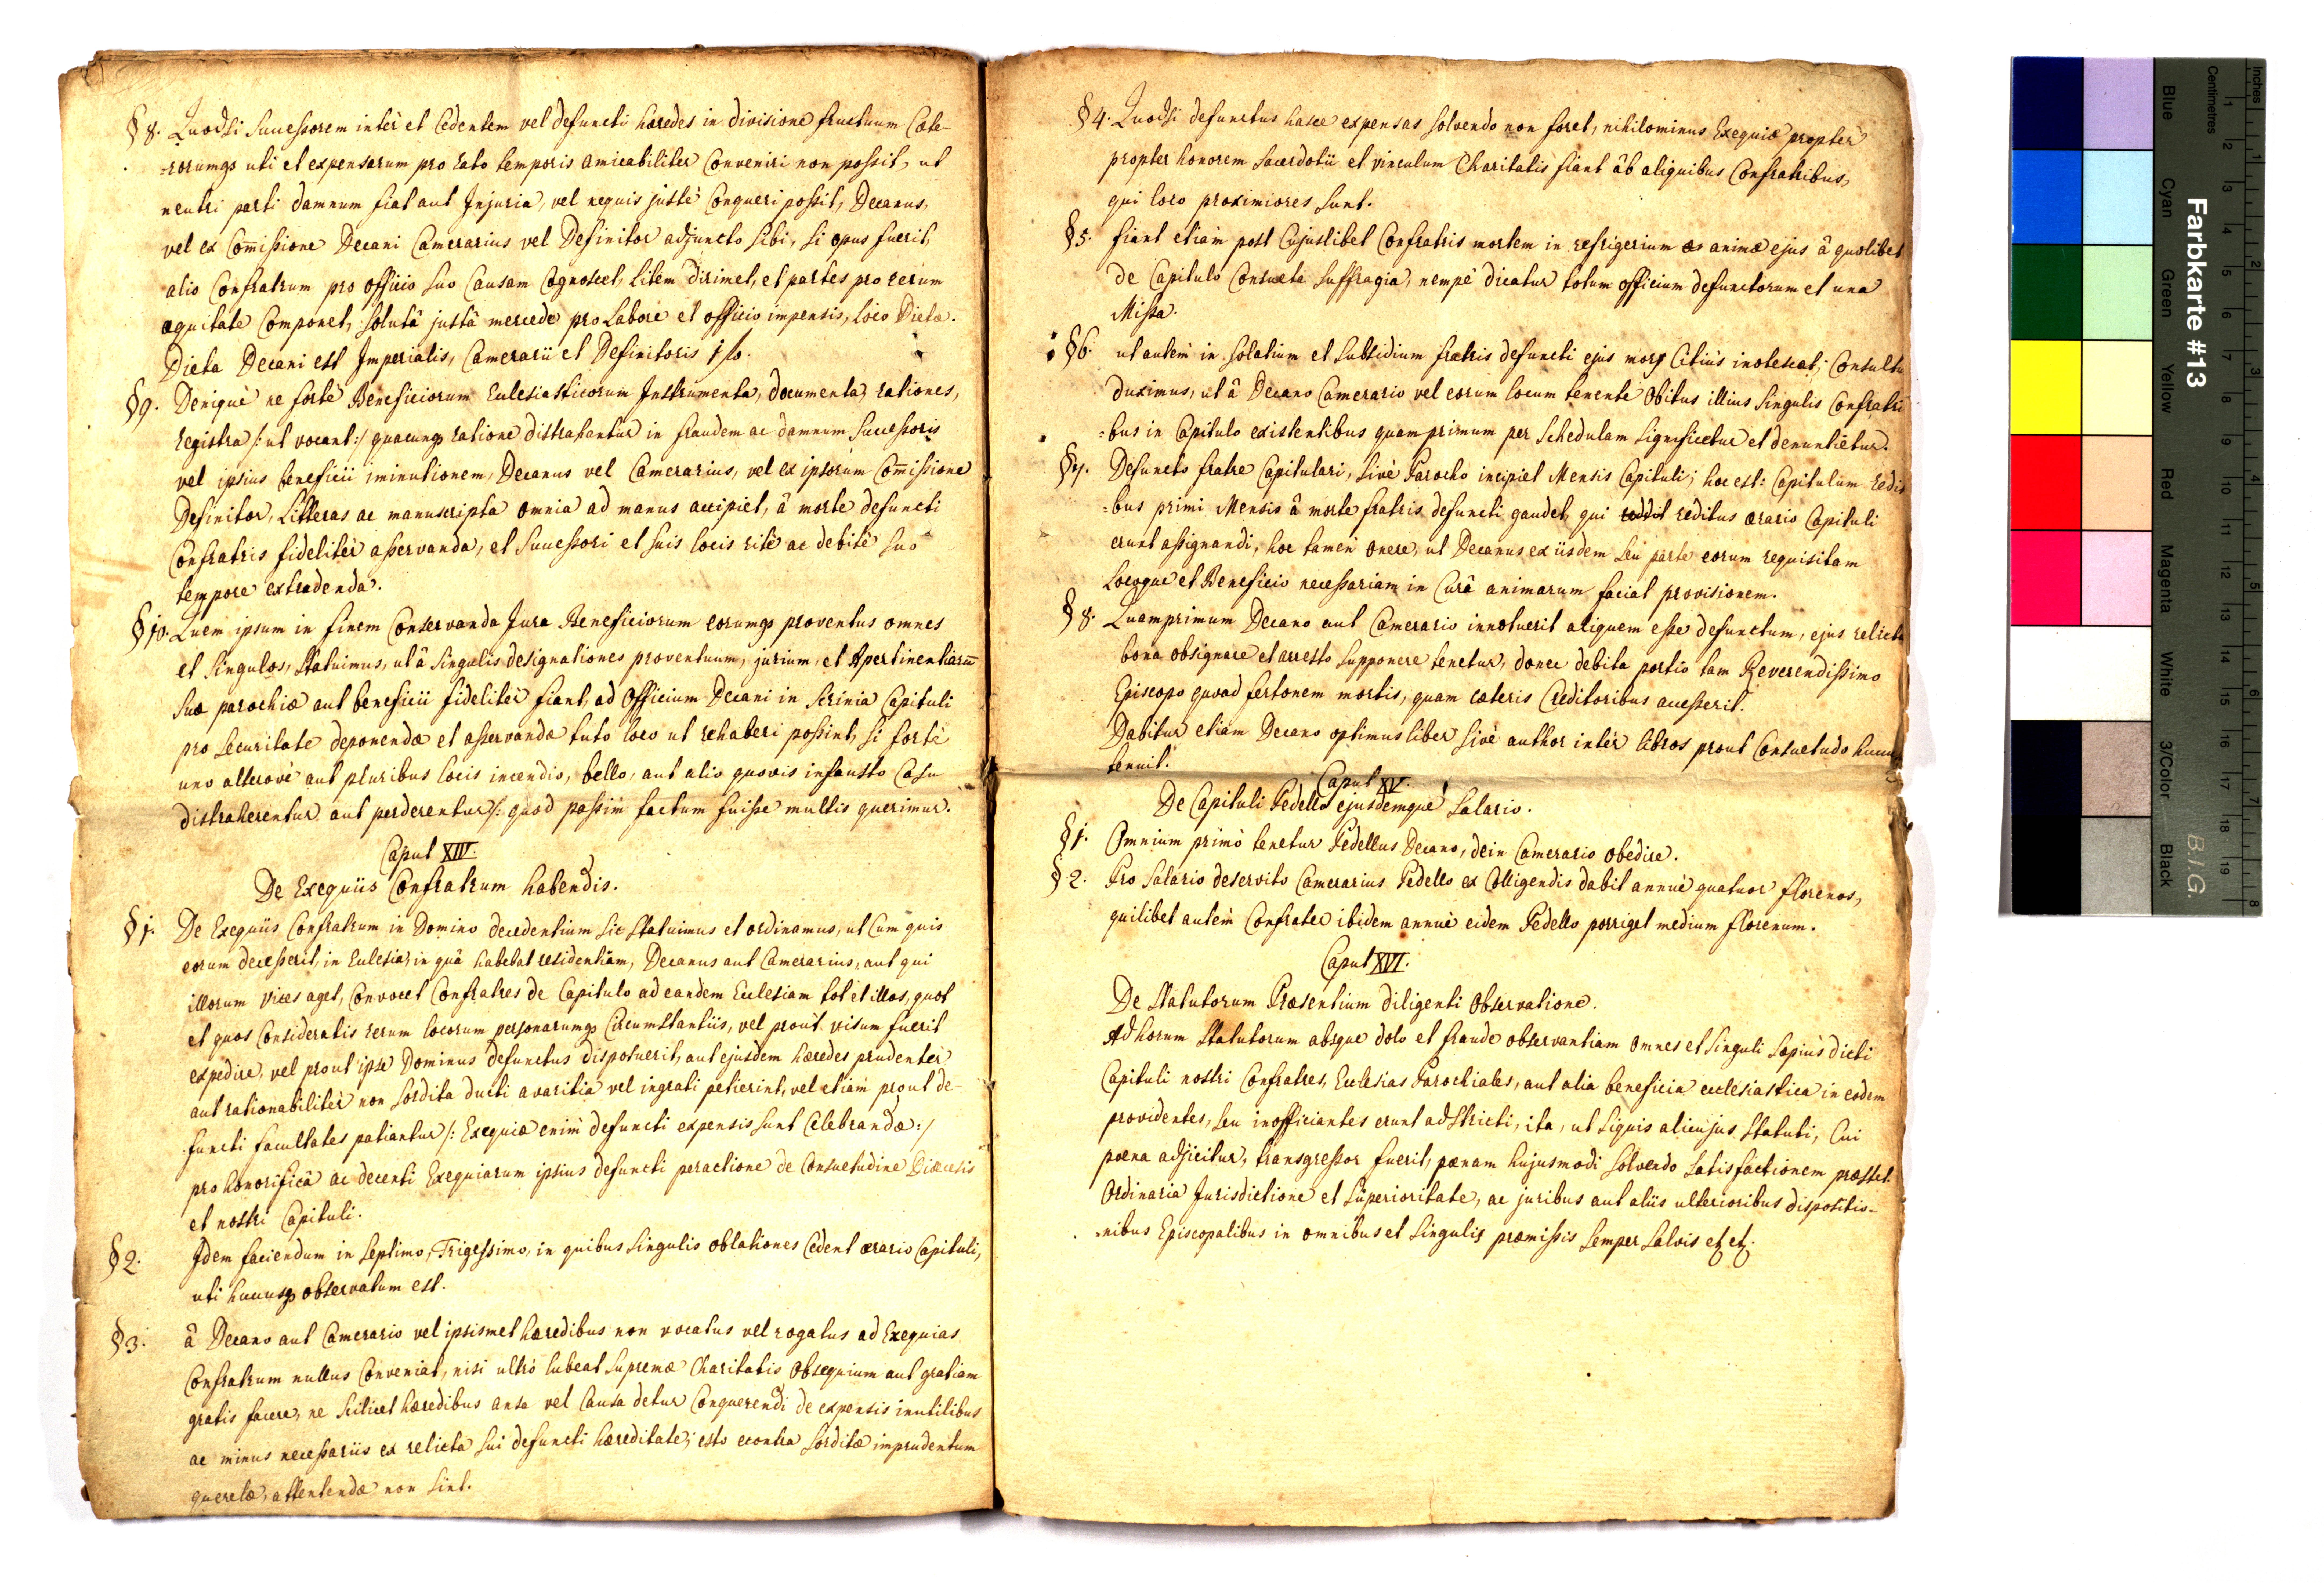 §8. Quodsi Successorem inter et Cedentem vel defuncti hæredes in divisione fructuum Cæte-
-rorumq3 uti et expensarum pro rato temporis amicabiliter Conveniri non possit, ut
neutri parti damnum fiat aut Injuria, vel nequis justè Conqueri possit, Decanus,
vel ex Com̄issione Decani Camerarius vel Definitor adjuncto sibi, si opus fuerit,
alio Confratrum pro officio suo Causam Cognoscet, litem dirimet, et partes pro rerum
æquitate Componet, solutâ justâ mercede pro Labore et officio impensis, loco Dietæ.
Dieta Decani est Imperialis, Camerarii et Definitoris 1 fl.
§9. Deniquè ne fortè Beneficiorum Eclesiasticorum Instrumenta, documenta, rationes,
registra /: ut vocant :/ quacunq3 ratione distrahantur in fraudem ac damnum Successoris
vel ipsius beneficii iminutionem, Decanus vel Camerarius, vel ex ipsorum Com̄issione
Definitor, Litteras ac manuscripta omnia ad manus accipiet, â morte defuncti
Confratris fidelitèr asservanda, et Successori et suis locis ritè ac debitè suo
tempore extradenda.
§10. Quem ipsum in finem Conservanda Jura Beneficiorum eorumq3 proventus omnes
et singulos, Statuimus, ut â singulis designationes proventuum, jurium, et Apertinentiarū
suæ parochiæ aut beneficii fidelitèr fiant, ad Officium Decani in scrinia Capituli
pro securitate deponendæ et asservandæ tuto loco ut rehaberi possint, si fortè
uno alterovè aut pluribus locis incendio, bello, aut alio quovis infausto Casu
distraherentur aut perderentur /: quod passim factum fuisse multis querimur.
Caput XIV.
De Exequiis Confratrum habendis.
§1. De Exequiis Confratrum in Domino decedentium sic Statuimus et ordinamus, ut Cum quis
eorum decesserit, in Eclesia, in quâ habebat residentiam, Decanus aut Camerarius, aut qui
illorum vices aget, Convocet Confratres de Capitulo ad eandem Ecclesiam tot et illos, quot
et quos Consideratis rerum locorum personarumq3 Circumstantiis, vel prout visum fuerit
expedire, vel prout ipse Dominus defunctus disposuerit, aut ejusdem hæredes prudentèr
aut rationabilitèr non sordita ducti avaritia vel ingrati petierint, vel etiam prout de-
functi facultates patiantur /: Exequiæ enim defuncti expensis sunt Celebrandæ :/
pro honorificâ ac decenti Exequiarum ipsius defuncti peractione de Consuetudine Diæcesis
et nostri Capituli.
§2. Idem faciendum in Septimo, Trigessimo, in quibus singulis oblationes Cedent ærario Capituli,
uti hucusq3 observatum est.
§3. â Decano aut Camerario vel ipsismet hæredibus non vocatus vel rogatus ad Exequias
Confratrum nullus Conveniat, nisi ultrò lubeat supremæ Charitatis Obsequium aut gratiam
gratis facere, ne scilicet hæredibus ansa vel Causa detur Conquerendi de expensis inutilibus
ac minus necessariis ex relicta sui defuncti hæreditate; esto econtra sorditæ imprudentum
querelæ, attentendæ non sint.
§4. Quodsi defunctus hasce expensas solvendo non foret, nihilominus Exequiæ proptèr
propter honorem sacerdotii et vinculum Charitatis fiant âb aliquibus Confratribus,
qui loco proximiores sunt.
§5. fiant etiam post Cujuslibet Confratris mortem in refrigerium animæ ejus â quolibet
de Capitulo Consueta Suffragia, nempè dicatur totum officium defunctorum et una
Missa.
§6. ut autem in solatium et subsidium fratris defuncti ejus mors Citius inotescat; Consultū
duximus, ut â Decano Camerario vel eorum locum tenente Obitus illius singulis Confratri
=bus in Capitulo existentibus quam primum per Schedulam significetur et denuntietur.
§7. Defuncto fratre Capitulari, sivè Parocho incipiet Mensis Capituli; hoc est: Capitulum redi
=bus primi Mensis â morte fratris defuncti gaudet, qui reddit reditus ærario Capituli
erunt assignandi, hoc tamen onere, ut Decanus ex iisdem seu parte eorum requisitam
Locoque et Beneficio necessariam in Curâ animarum faciat provisionem.
§8. Quamprimum Decano aut Camerario innotuerit aliquem esse defunctum, ejus relicta
bona obsignare et arresto supponere tenetur, donec debita portio tam Reverendissimo
Episcopo quoad fertonem mortis, quam cæteris Creditoribus accesserit.
Dabitur etiam Decano optimus liber sivè author intèr libros prout Consuetudo hucus
tenuit.
Caput XV.
De Capituli Pedello ejusdemquè Salario.
§1. Omnium primò tenetur Pedellus Decano, dein Camerario obedire.
§2. Pro Salario deservito Camerarius Pedello ex Colligendis dabit annuè quatuor florenos,
quilibet autem Confrater ibidem annuè eidem Pedello porriget medium florenum.
Caput XVI.
De Statutorum Præsentium diligenti Observatione.
Ad horum Statutorum absque dolo et fraude observantiam omnes et singuli sæpiùs dicti
Capituli nostri Confratres, Ecclesias Parochiales, aut alia beneficia ecclesiastica in eodem
providentes, seu inofficiantes erunt adstricti, ita, ut siquis alicujus Statuti, Cui
pœna adjicitur, transgressor fuerit, pœnam hujusmodi solvendo satisfactionem præstet.
Ordinaria Jurisdictione et superioritate, ac juribus aut aliis ulterioribus dispositio-
-nibus Episcopalibus in omnibus et singulis præmissis semper salvis et et.
Farbkarte #13
Inches
Centimetres
1 2 3 4 5 6 7 8
1 2 3 4 5 6 7 8 9 10 11 12 13 14 15 16 17 18 19
Blue
Cyan
Green
Yellow
Red
Magenta
White
3/Color
Black
B.I.G.